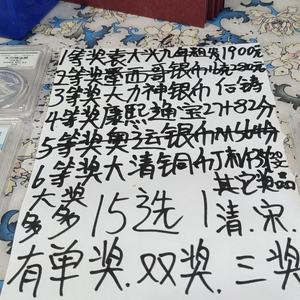 1等奖袁大头九年粗发1900元
2等奖墨西哥银币
3等奖大力神银币信铸
4等奖康熙通宝27+82分
5等奖奥运银币M64分
6等奖大清铜币
其它奖品
大奖
多多 15选1清.宋.
有单奖.双奖.三奖